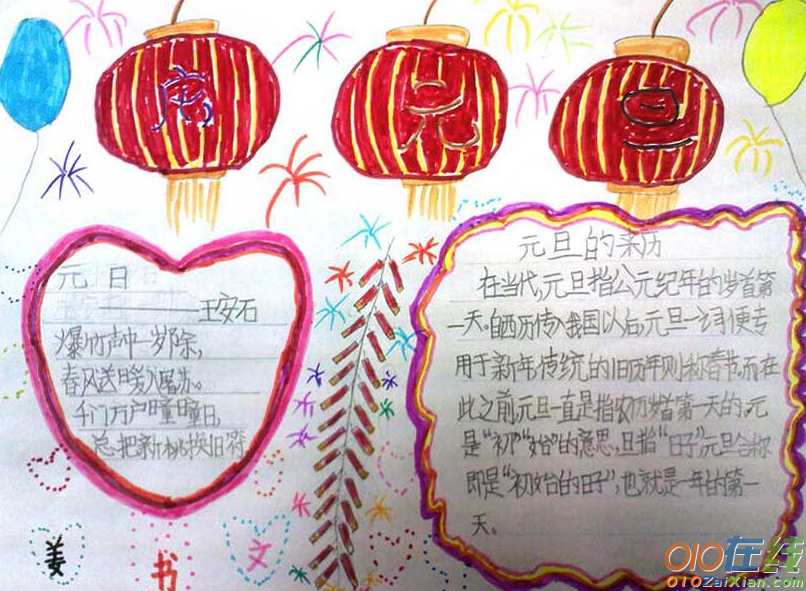 庆元旦
元 日
————王安石
爆竹声中一岁除,
春风送暖入屠苏。
千门万户曈曈日,
总把新桃换旧符
元旦的来历
在当代,元旦指公元纪年的岁首第
一天。自西历传入我国以后,元旦一词便专
用于新年,传统的旧历年则称春节,而在
此之前,元旦一直是指农历岁首第一天的。元
是“初”“始”的意思,旦指“日子”,元旦合称
即是“初始的日子”,也就是一年的第一
天。
姜 书 文
010在线
010ZaiXian.com